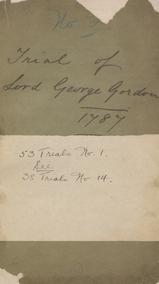 No. 3
Trial of
Lord George Gordon
1787
53 Trials No. 1.
See
35 Trials No 14.